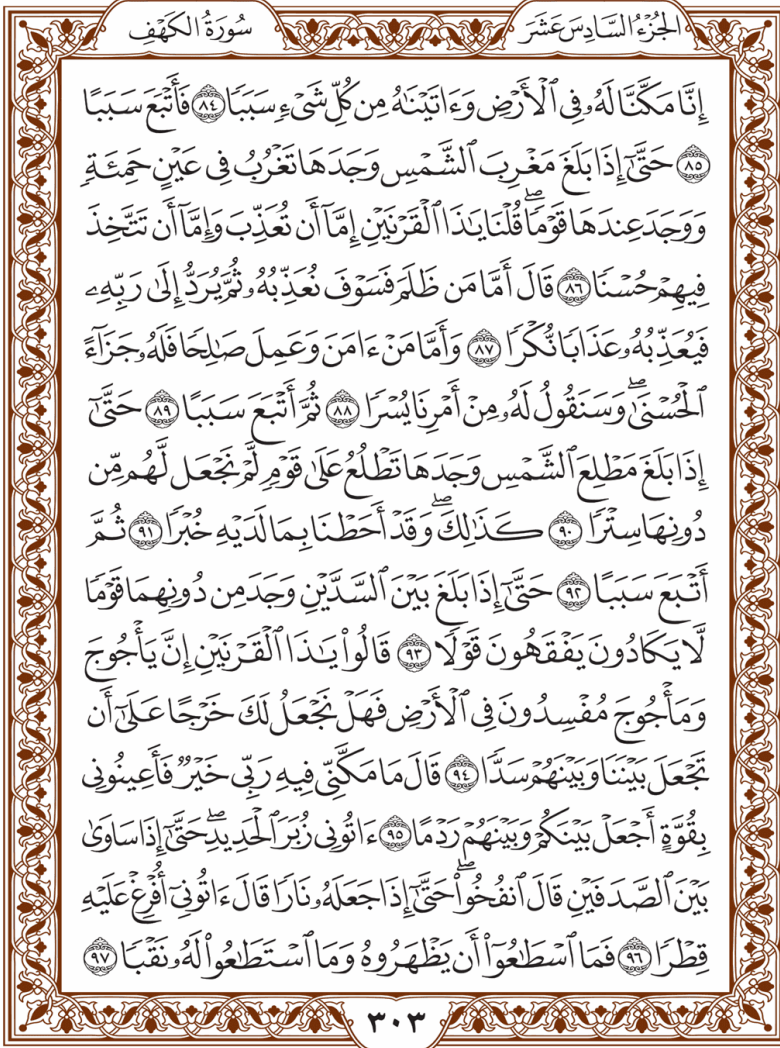 الجُزْءُ السَّادِسَ عَشَرَ
سُورَةُ الكَهْفِ
إِنَّا مَكَّنَّا لَهُۥ فِى ٱلْأَرْضِ وَءَاتَيْنَٰهُ مِن كُلِّ شَىْءٍ سَبَبًا ٨٤ فَأَتْبَعَ سَبَبًا
٨٥ حَتَّىٰٓ إِذَا بَلَغَ مَغْرِبَ ٱلشَّمْسِ وَجَدَهَا تَغْرُبُ فِى عَيْنٍ حَمِئَةٍ
وَوَجَدَ عِندَهَا قَوْمًاۖ قُلْنَا يَٰذَا ٱلْقَرْنَيْنِ إِمَّآ أَن تُعَذِّبَ وَإِمَّآ أَن تَتَّخِذَ
فِيهِمْ حُسْنًا ٨٦ قَالَ أَمَّا مَن ظَلَمَ فَسَوْفَ نُعَذِّبُهُۥ ثُمَّ يُرَدُّ إِلَىٰ رَبِّهِۦ
فَيُعَذِّبُهُۥ عَذَابًا نُّكْرًا ٨٧ وَأَمَّا مَنْ ءَامَنَ وَعَمِلَ صَٰلِحًا فَلَهُۥ جَزَآءً
ٱلْحُسْنَىٰۖ وَسَنَقُولُ لَهُۥ مِنْ أَمْرِنَا يُسْرًا ٨٨ ثُمَّ أَتْبَعَ سَبَبًا ٨٩ حَتَّىٰٓ
إِذَا بَلَغَ مَطْلِعَ ٱلشَّمْسِ وَجَدَهَا تَطْلُعُ عَلَىٰ قَوْمٍ لَّمْ نَجْعَل لَّهُم مِّن
دُونِهَا سِتْرًا ٩٠ كَذَٰلِكَۖ وَقَدْ أَحَطْنَا بِمَا لَدَيْهِ خُبْرًا ٩١ ثُمَّ
أَتْبَعَ سَبَبًا ٩٢ حَتَّىٰٓ إِذَا بَلَغَ بَيْنَ ٱلسَّدَّيْنِ وَجَدَ مِن دُونِهِمَا قَوْمًا
لَّا يَكَادُونَ يَفْقَهُونَ قَوْلًا ٩٣ قَالُوا۟ يَٰذَا ٱلْقَرْنَيْنِ إِنَّ يَأْجُوجَ
وَمَأْجُوجَ مُفْسِدُونَ فِى ٱلْأَرْضِ فَهَلْ نَجْعَلُ لَكَ خَرْجًا عَلَىٰٓ أَن
تَجْعَلَ بَيْنَنَا وَبَيْنَهُمْ سَدًّا ٩٤ قَالَ مَا مَكَّنِّى فِيهِ رَبِّى خَيْرٌ فَأَعِينُونِى
بِقُوَّةٍ أَجْعَلْ بَيْنَكُمْ وَبَيْنَهُمْ رَدْمًا ٩٥ ءَاتُونِى زُبَرَ ٱلْحَدِيدِۖ حَتَّىٰٓ إِذَا سَاوَىٰ
بَيْنَ ٱلصَّدَفَيْنِ قَالَ ٱنفُخُوا۟ۖ حَتَّىٰٓ إِذَا جَعَلَهُۥ نَارًا قَالَ ءَاتُونِىٓ أُفْرِغْ عَلَيْهِ
قِطْرًا ٩٦ فَمَا ٱسْطَٰعُوٓا۟ أَن يَظْهَرُوهُ وَمَا ٱسْتَطَٰعُوا۟ لَهُۥ نَقْبًا ٩٧
٣٠٣